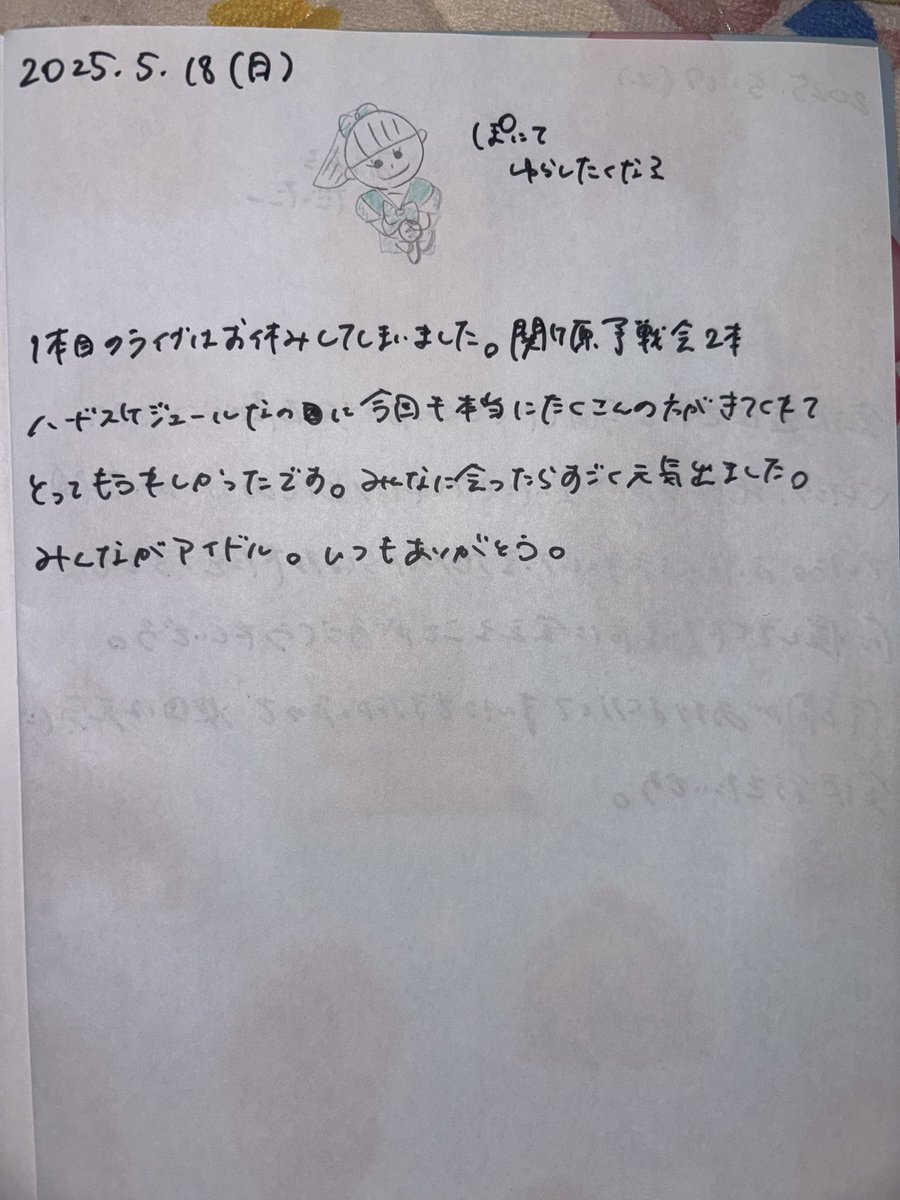 2025.5.18(日)
ぽにて
ゆらしたくなる
1本目のライブはお休みしてしまいました。関ケ原予戦会2本
ハードスケジュールなのに今回も本当にたくさんの方がきてくれて
とってもうれしかったです。みんなに会ったらすごく元気出ました。
みんながアイドル。いつもありがとう。